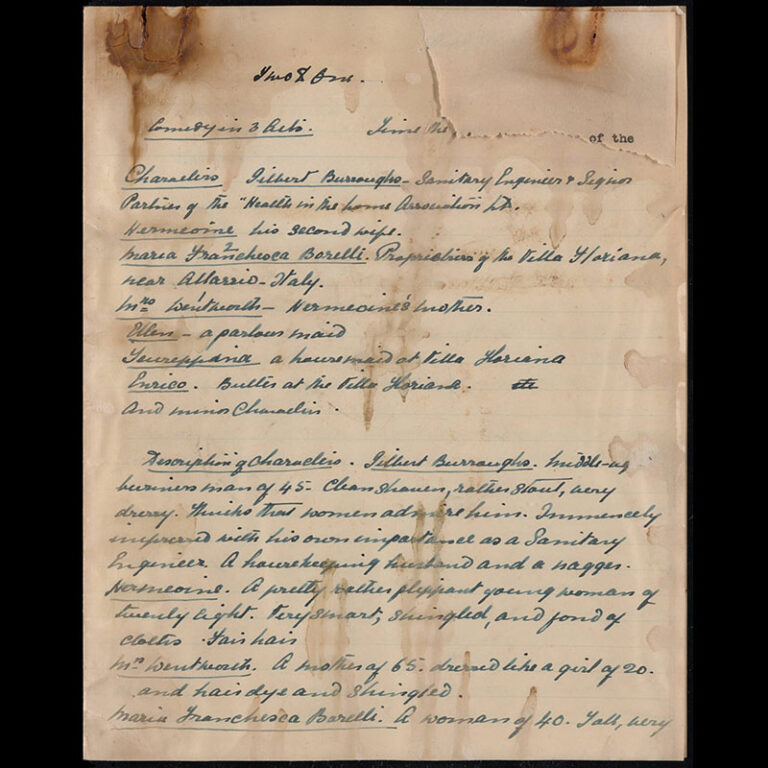 Two & One.
Comedy in 3 Acts. Time the of the
Characters Gilbert Burroughs - Sanitary Engineer & Signor
Partner of the "Health in the home Association Ltd.
Hermeoine his second wife.
Maria Franchesca Borelli. Proprietress of the Villa Floriana,
near Allassio - Italy.
Mrs Wentworth - Hermeoine's mother.
Ellen - a parlour maid
a housemaid at Villa Floriana
Enrico. Butler at the Villa Floriana.
And minor Characters.
Description of Characters. Gilbert Burroughs. Middle-ag
business man of 45. Clean shaven, rather stout, very
dressy. Thinks that women admire him. Immencely
impressed with his own importance as a Sanitary
Engineer. A housekeeping husband and a nagger.
Hermeoine. A pretty rather flippant young woman of
twenty eight. Very smart, shingled, and fond of
clothes. Fair hair
Mrs Wentworth. A mother of 65. dressed like a girl of 20.
and hair dye and shingled.
Maria Franchesca Borelli. A woman of 40. Tall, very